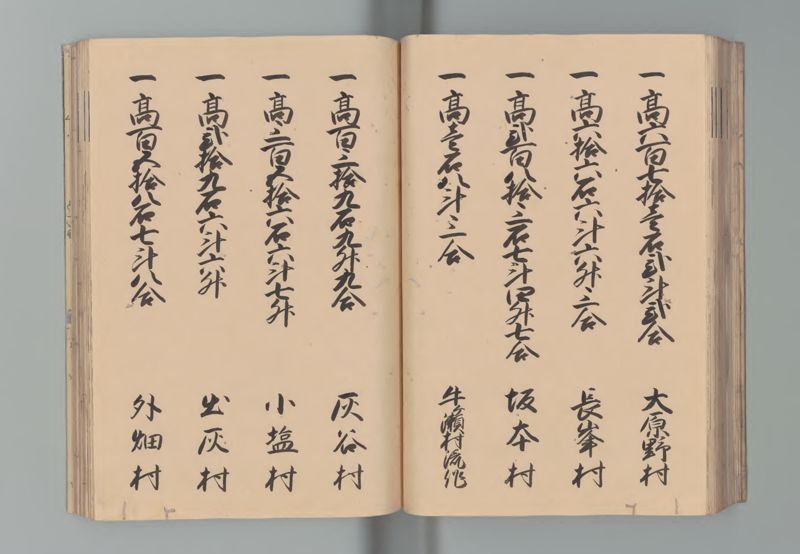 一髙六百七拾壱石弐斗弐合 大原野村
一髙六拾六石六斗六升三合 長峯村
一髙弐百八拾三石七斗四升七合 坂本村
一髙壱石八斗三合 牛瀬村流作
一髙百三拾九石九升九合 灰谷村
一髙三百五拾六石六斗七升 小塩村
一髙弐拾九石六斗六升 出灰村
一髙百五拾八石七斗八合 外畑村